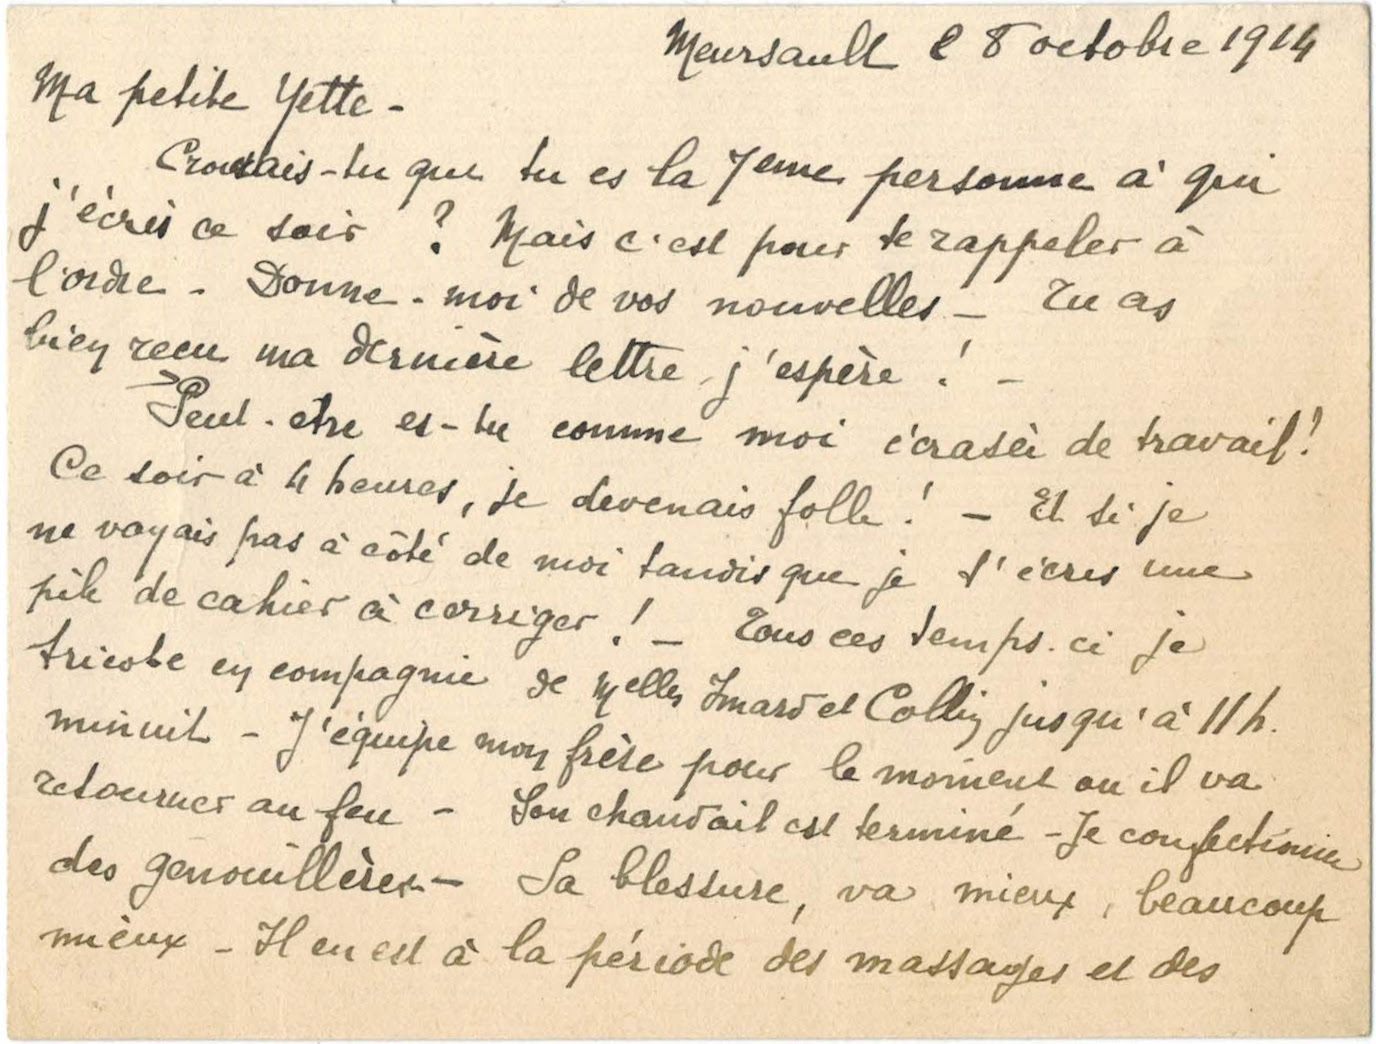 Meursault l 8 octobre 1914
Ma petite Yette -
Croirais-tu que tu es la 7eme personne à qui
j'écris ce soir ? Mais c'est pour te rappeler à
l'ordre - Donne-moi de vos nouvelles - Tu as
bien recu ma dernière lettre j'espère ! -
Peut-etre es-tu comme moi écrasée de travail !
Ce soir à 4 heures, je devenais folle ! - Et si je
ne voyais pas à côté de moi tandis que je t'écris une
pile de cahier à corriger ! - Tous ces temps-ci je
tricote en compagnie de Melles Imard et Collin jusqu'à 11 h.
minuit - J'équipe mon frère pour le moment ou il va
retourner au feu - Son chandail est terminé - Je confectionne
des genouillères - Sa blessure, va mieux, beaucoup
mieux - Il en est à la période des massages et des